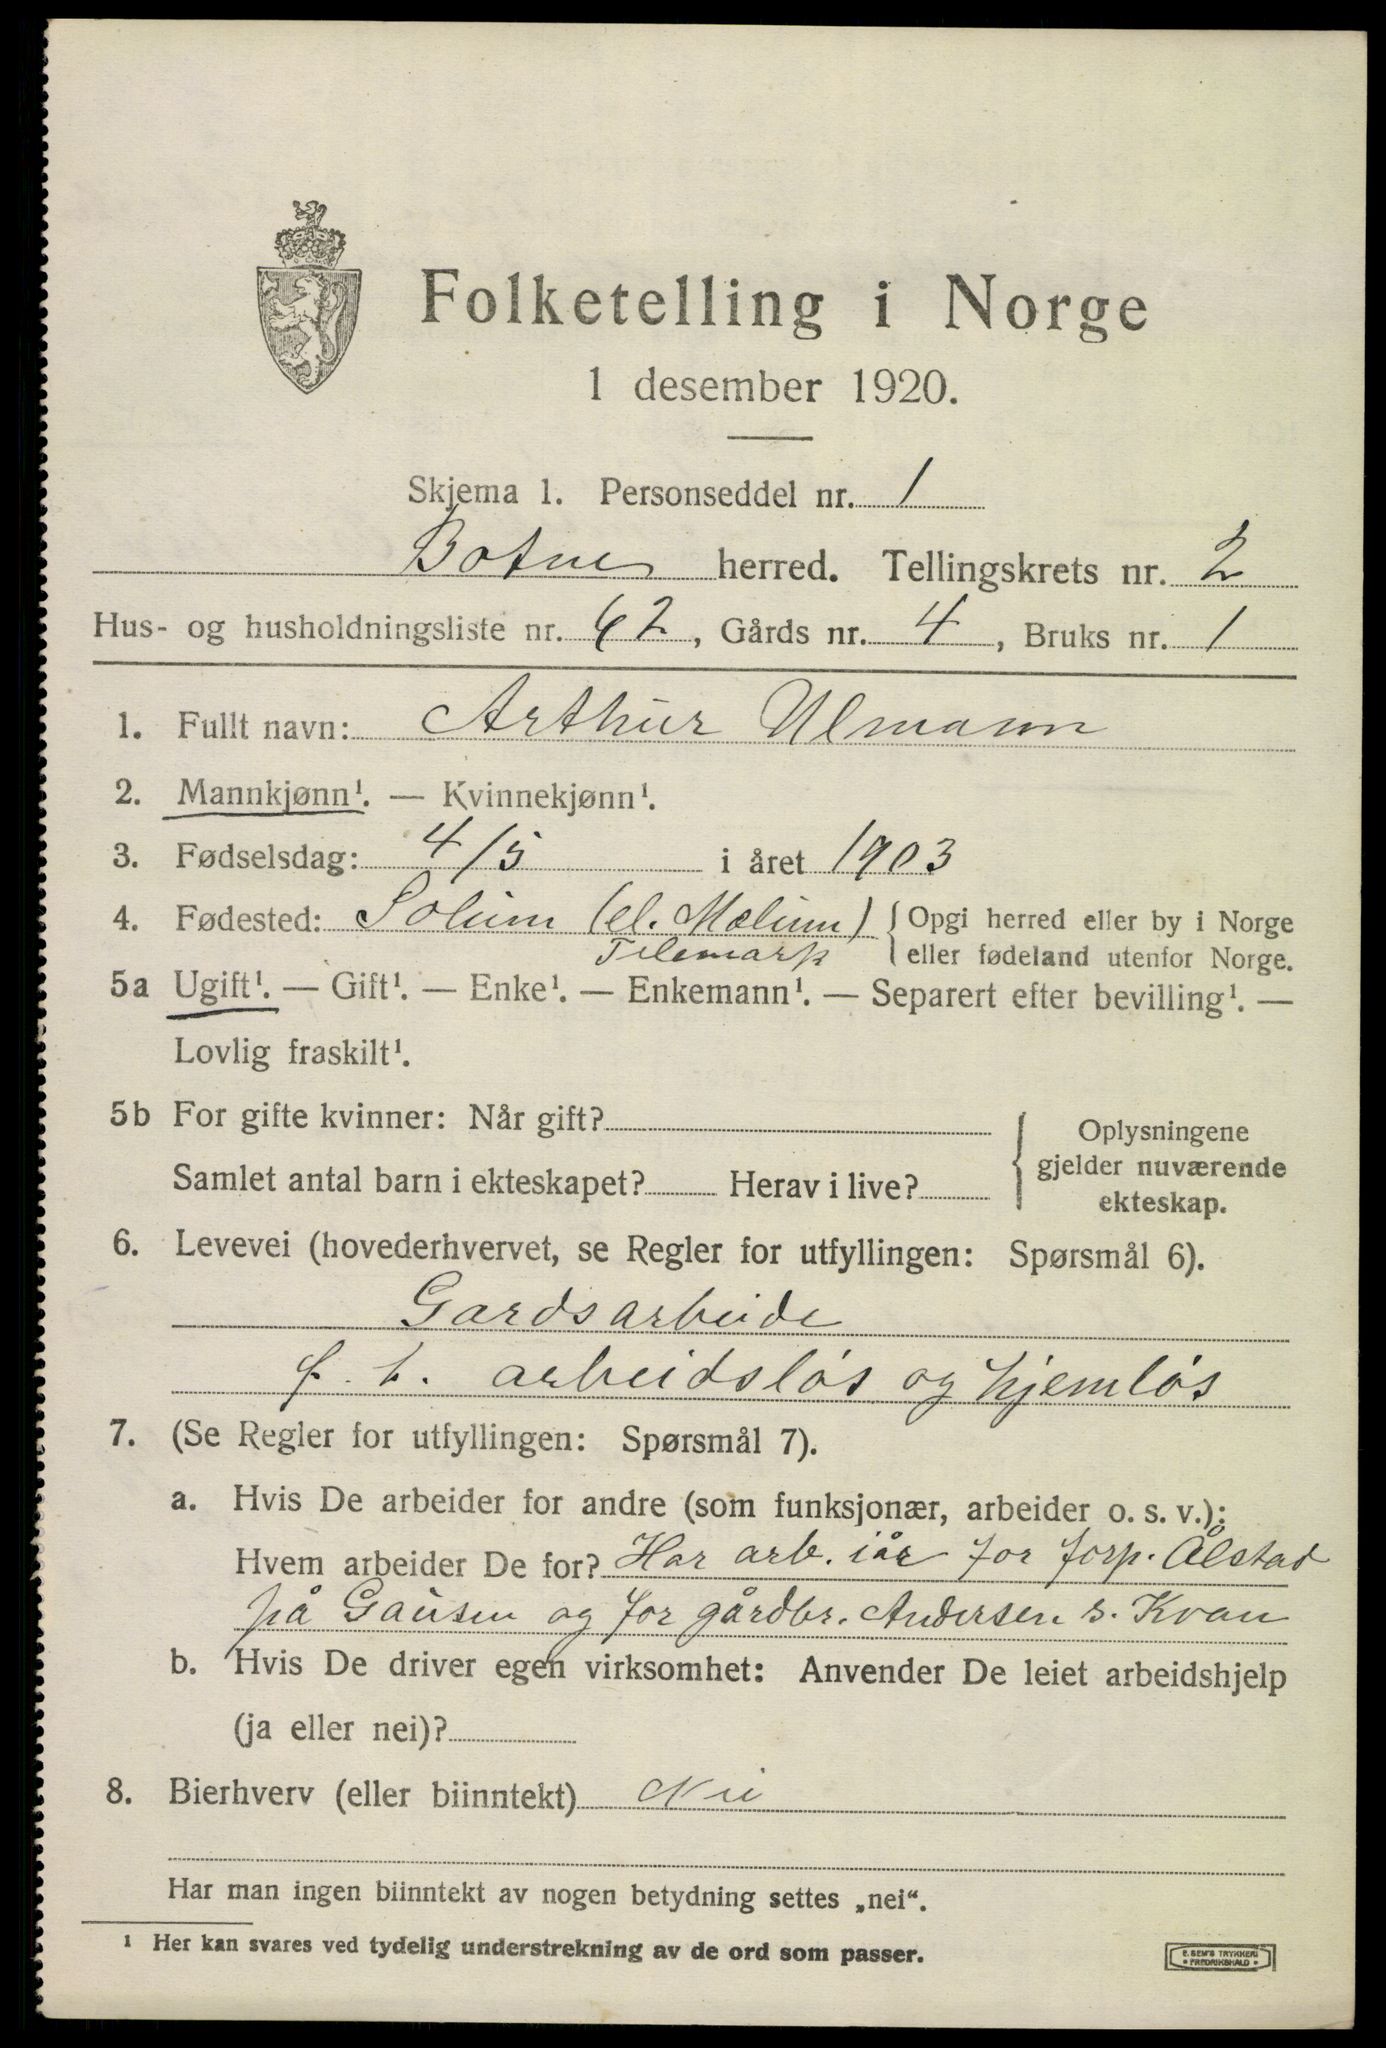 Folketelling i Norge
1 desember 1920.
Skjema 1. Personseddel nr. 1
Botne herred. Tellingskrets nr. 2
Hus- og husholdningsliste nr. 62, Gårds nr. 4, Bruks nr. 1
1. Fullt navn: Arthur Ulmann
2. Mannkjønn¹. — Kvinnekjønn¹.
3. Fødselsdag: 4/5 i året 1903
4. Fødested: Solum (el. Mælum) { Opgi herred eller by i Norge
Telemark eller fødeland utenfor Norge.
5a Ugift¹. — Gift¹. — Enke¹. — Enkemann¹. — Separert efter bevilling¹. —
Lovlig fraskilt¹.
5b For gifte kvinner: Når gift?
Samlet antal barn i ekteskapet? Herav i live?
Oplysningene
gjelder nuværende
ekteskap.
6. Levevei (hovederhvervet, se Regler for utfyllingen: Spørsmål 6).
Gardsarbeide
f. t. arbeidsløs og hjemløs
7. (Se Regler for utfyllingen: Spørsmål 7).
a. Hvis De arbeider for andre (som funksjonær, arbeider o. s. v.):
Hvem arbeider De for? Har arb. iår for forp. Ålstad
på Gausen og for gårdbr. Andersen s. Kvan
b. Hvis De driver egen virksomhet: Anvender De leiet arbeidshjelp
(ja eller nei)?
8. Bierhverv (eller biinntekt) Nei
Har man ingen biinntekt av nogen betydning settes „nei“.
¹ Her kan svares ved tydelig understrekning av de ord som passer.
E. SEM'S TRYKKERI
• FREDRIKSHALD •